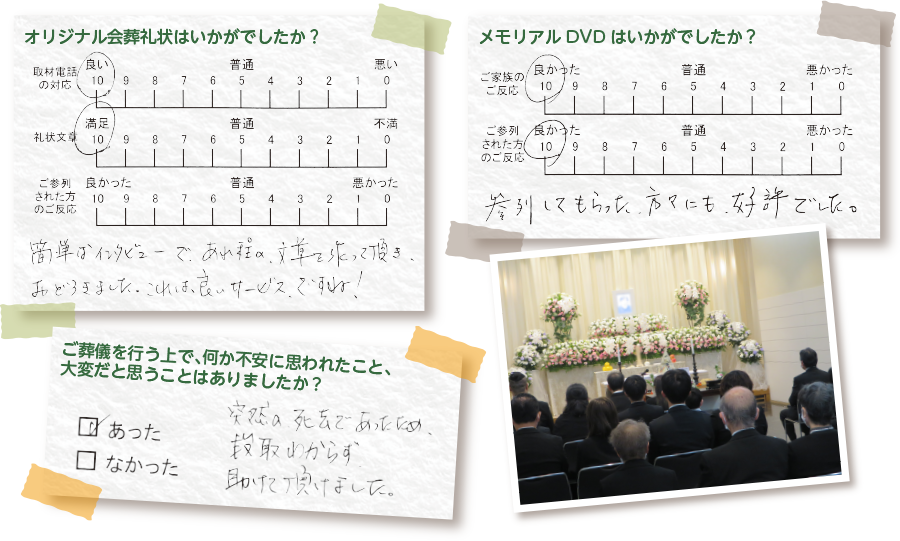 オリジナル会葬礼状はいかがでしたか？
取材電話
の対応
良い 普通 悪い
10 9 8 7 6 5 4 3 2 1 0
礼状文章
満足 普通 不満
10 9 8 7 6 5 4 3 2 1 0
ご参列
された方
のご反応
良かった 普通 悪かった
10 9 8 7 6 5 4 3 2 1 0
簡単なインタビューで、あれ程の、文章を作って頂き、
おどろきました。これは、良いサービスですね！
メモリアル DVD はいかがでしたか？
ご家族の
ご反応
良かった 普通 悪かった
10 9 8 7 6 5 4 3 2 1 0
ご参列
された方
のご反応
良かった 普通 悪かった
10 9 8 7 6 5 4 3 2 1 0
参列してもらった、方々にも、好評でした。
ご葬儀を行う上で、何か不安に思われたこと、
大変だと思うことはありましたか？
あった
なかった
突然の死去であったため、
段取わからず
助けて頂けました。